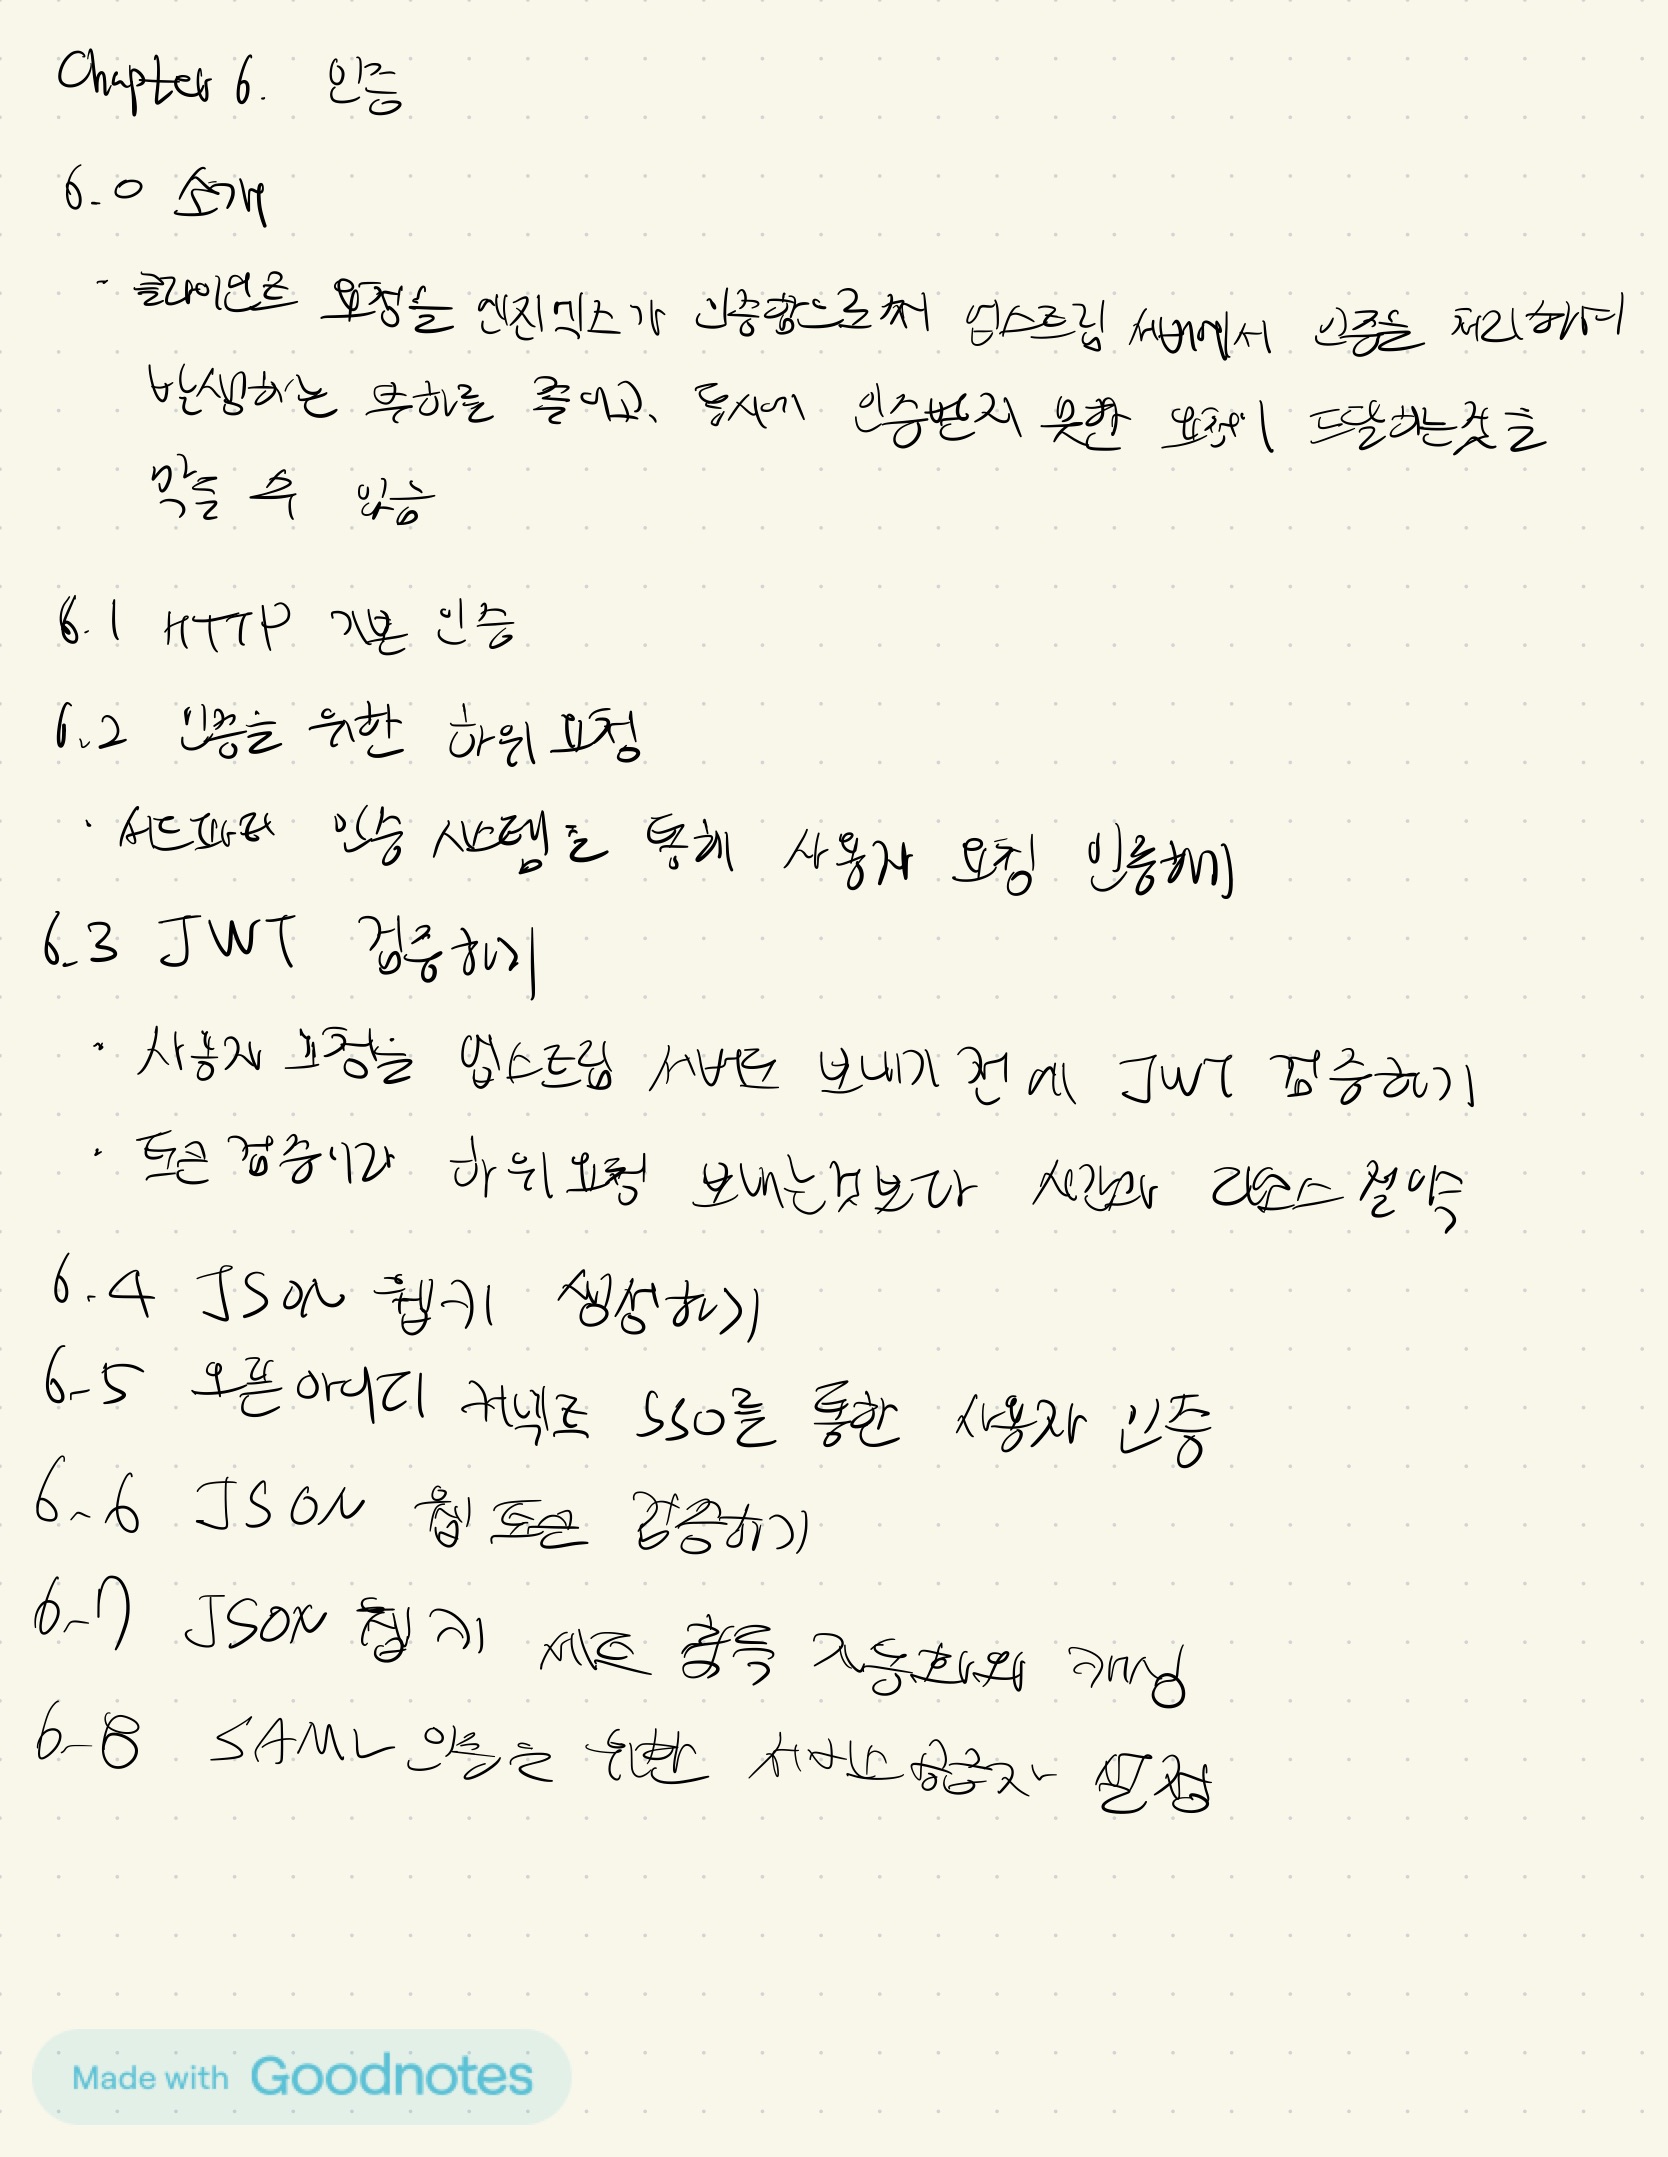 Chapter 6. 인증
6.0 소개
- 클라이언트 요청을 엔진엑스가 인증함으로써 업스트림 서버에서 인증을 처리하며
발생하는 부하를 줄이고, 동시에 인증받지 못한 요청이 도달하는것을
막을 수 있음
6.1 HTTP 기본 인증
6.2 인증을 위한 하위 요청
· 서드파티 인증 시스템을 통해 사용자 요청 인증하기
6.3 JWT 검증하기
· 사용자 요청을 업스트림 서버로 보내기 전에 JWT 검증하기
· 토큰 검증이라 하위요청 보내는것보다 시간과 리소스 절약
6.4 JSON 웹키 생성하기
6-5 오픈아이디 커넥트 SSO를 통한 사용자 인증
6-6 JSON 웹 토큰 검증하기
6-7 JSON 웹 키 세트 획득 자동화와 캐싱
6-8 SAML 인증을 위한 서비스 공급자 설정
Made with Goodnotes